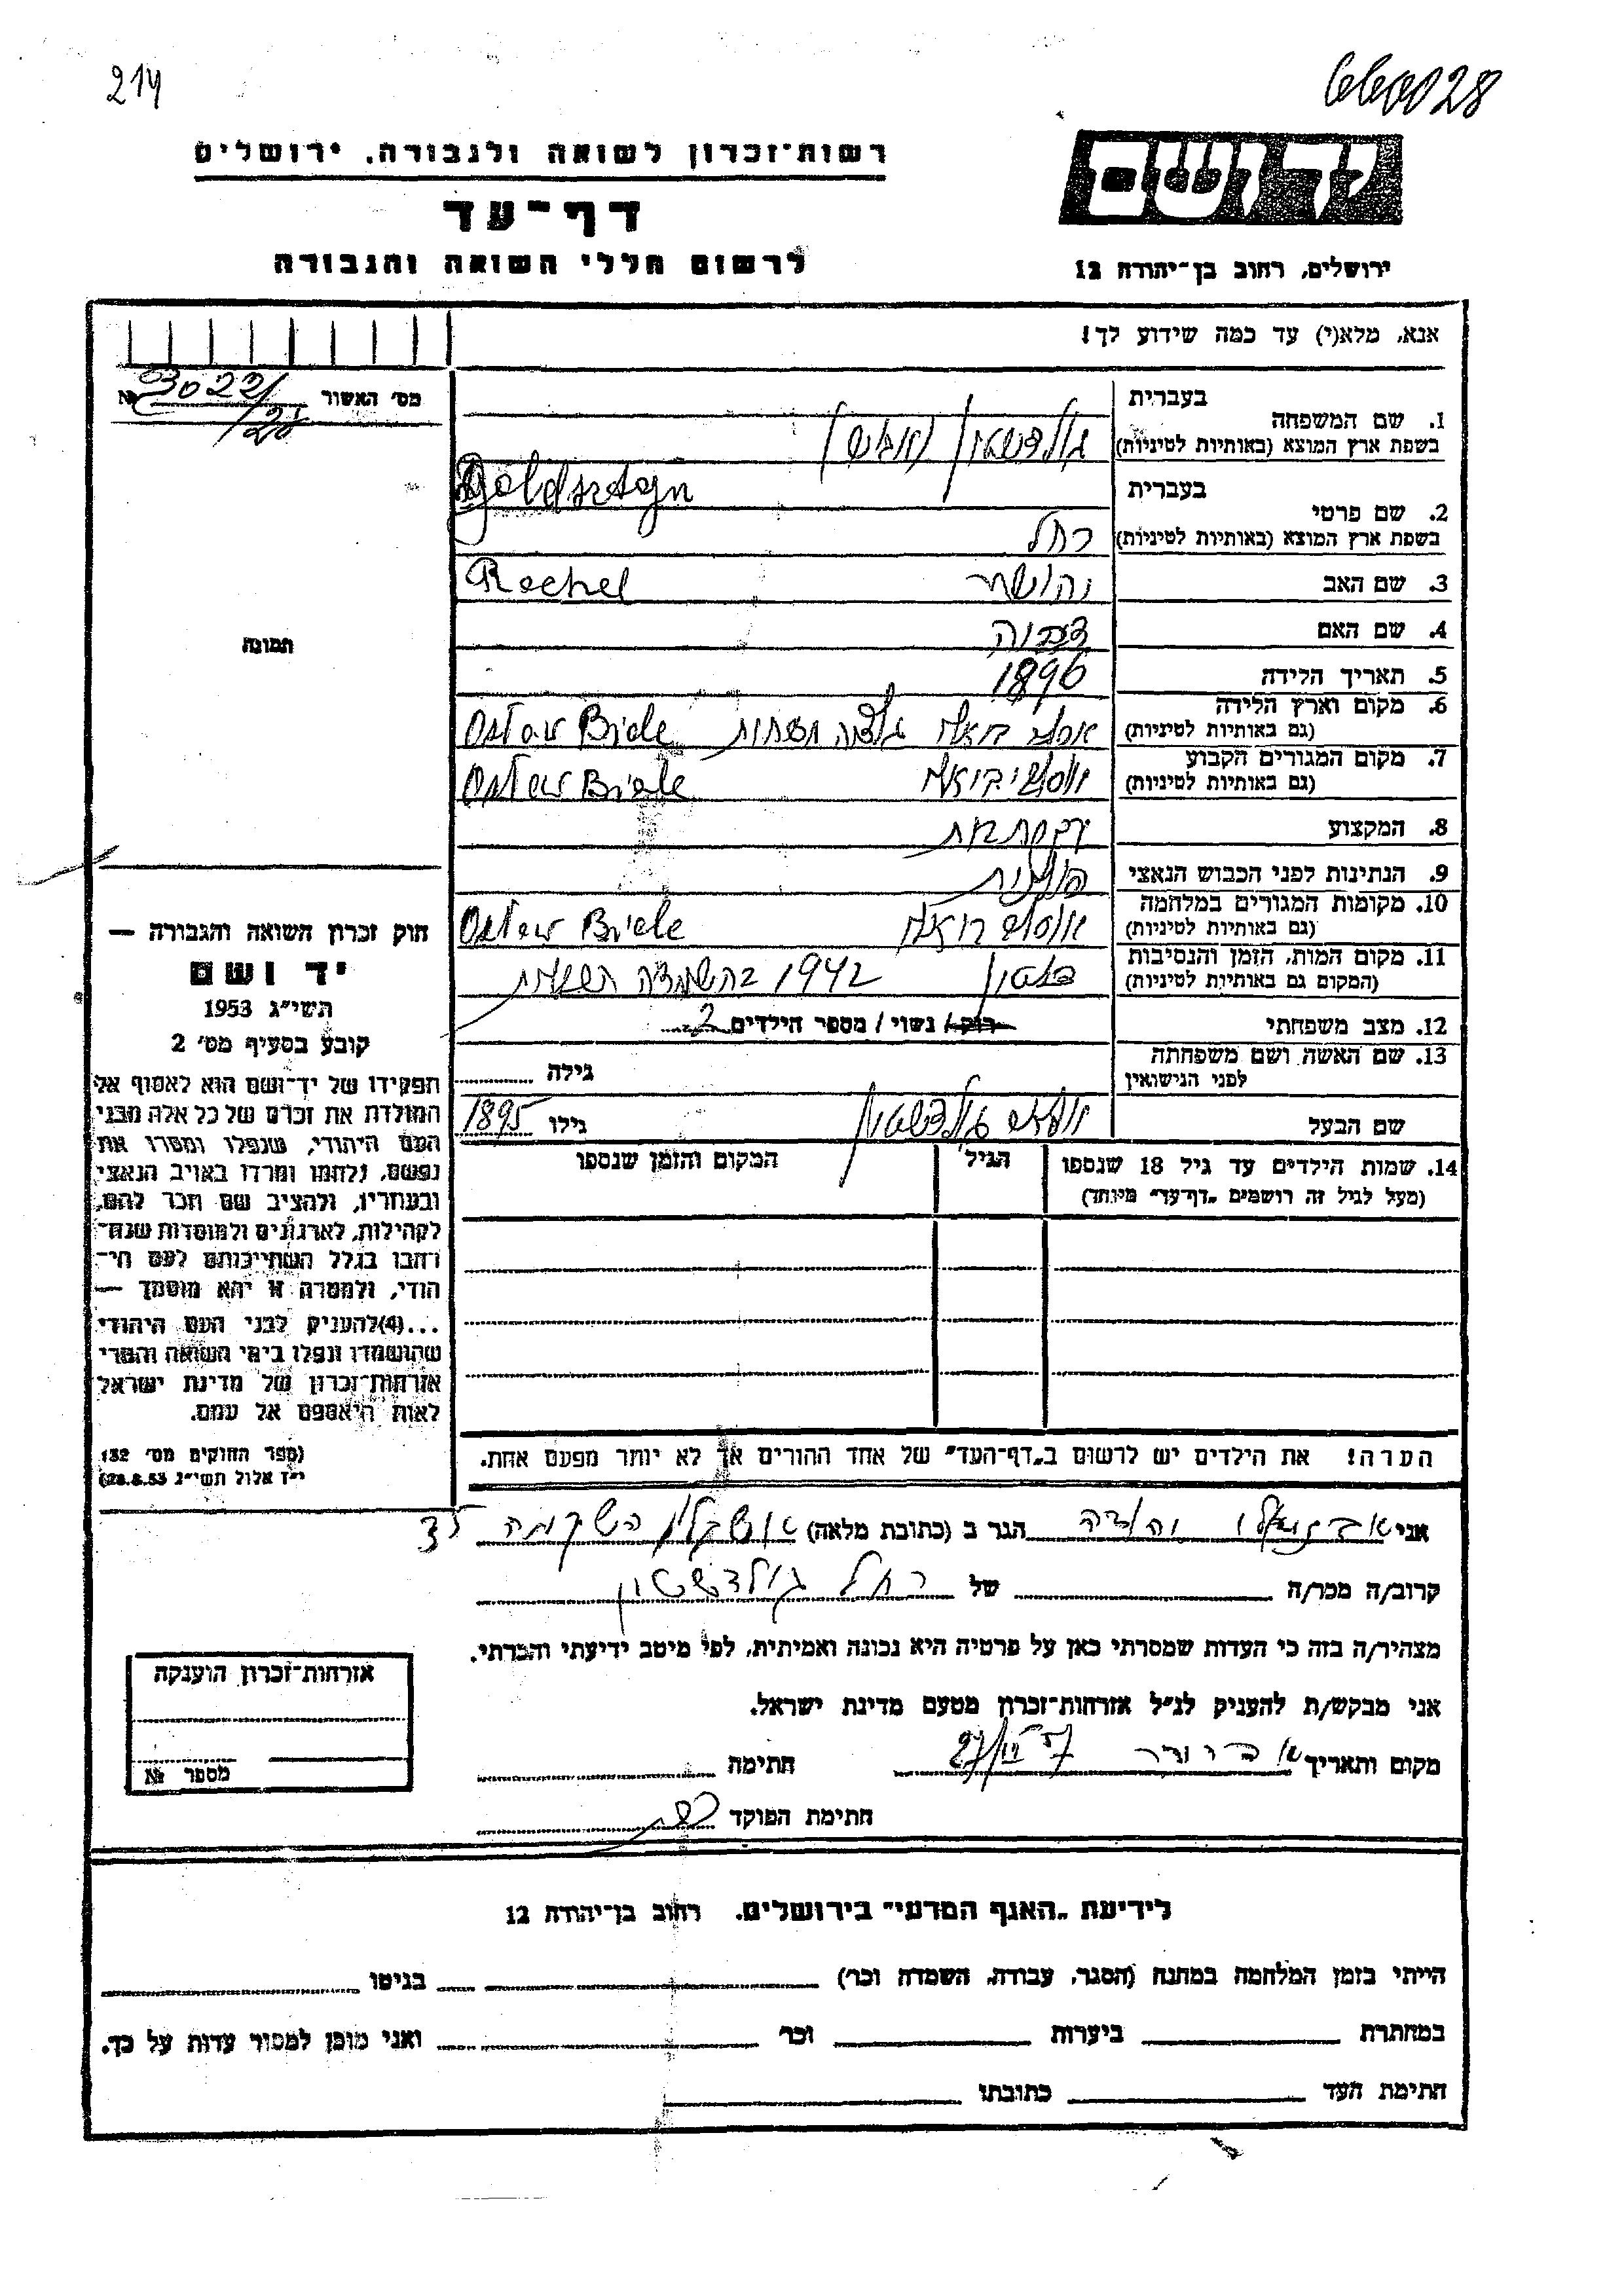 214
660028
רשות־זכרון לשואה ולגבורה, ירושלים
דף־עד
לרשום חללי השואה והגבורה
יד ושם
ירושלים, רחוב בן־יהודה 12
אנא, מלא(י) עד כמה שידוע לך!
מס' האשור № 3022/25
בעברית
1. שם המשפחה
בשפת ארץ המוצא (באותיות לטיניות)
גולדשטיין
Goldsztayn
בעברית
2. שם פרטי
בשפת ארץ המוצא (באותיות לטיניות)
רחל
Rachel
3. שם האב
יהושע
4. שם האם
דבורה
5. תאריך הלידה 1896
6. מקום וארץ הלידה
(גם באותיות לטיניות)
Ostaw Biele
7. מקום המגורים הקבוע
(גם באותיות לטיניות)
Ostaw Biele
8. המקצוע
עקרת בית
9. הנתינות לפני הכבוש הנאצי
פולנית
10. מקומות המגורים במלחמה
(גם באותיות לטיניות)
Ostaw Biele
11. מקום המות, הזמן והנסיבות
(המקום גם באותיות לטיניות)
1942 בהשמדה
12. מצב משפחתי רוק/ נשוי / מספר הילדים 2
13. שם האשה ושם משפחתה
לפני הנישואין
גילה
שם הבעל גולדשטיין גילו 1895
14. שמות הילדים עד גיל 18 שנספו
(מעל לגיל זה רושמים „דף־עד" מיוחד)
הגיל
המקום והזמן שנספו
הערה! את הילדים יש לרשום ב„דף־העד" של אחד ההורים אך לא יותר מפעם אחת.
תמונה
חוק זכרון השואה והגבורה —
יד ושם
תשי״ג 1953
קובע בסעיף מס' 2
תפקידו של יד־ושם הוא לאסוף אל
המולדת את זכרם של כל אלה מבני
העם היהודי, שנפלו ומסרו את
נפשם, נלחמו ומרדו באויב הנאצי
ובעוזריו, ולהציב שם וזכר להם,
לקהילות, לארגונים ולמוסדות שנח־
רבו בגלל השתייכותם לעם הי־
הודי, ולמטרה זו יהא מוסמך —
...(4)להעניק לבני העם היהודי
שהושמדו ונפלו בימי השואה והמרי
אזרחות־זכרון של מדינת ישראל
לאות היאספם אל עמם.
(ספר החוקים מס' 132
י״ז אלול תשי״ג 28.8.53)
אני יהודה הגר ב (כתובת מלאה) אשקלון השקמה
קרוב/ה מכר/ה של רחל גולדשטיין
מצהיר/ה בזה כי העדות שמסרתי כאן על פרטיה היא נכונה ואמיתית, לפי מיטב ידיעתי והכרתי.
אני מבקש/ת להעניק לנ״ל אזרחות־זכרון מטעם מדינת ישראל.
מקום ותאריך חתימה
חתימת הפוקד
אזרחות־זכרון הוענקה
מספר №
לידיעת „האגף המדעי" בירושלים, רחוב בן־יהודה 12
הייתי בזמן המלחמה במחנה (הסגר, עבודה, השמדה וכר') בגיטו
במחתרת ביערות וכר' ואני מוכן למסור עדות על כך.
חתימת העד כתובתו